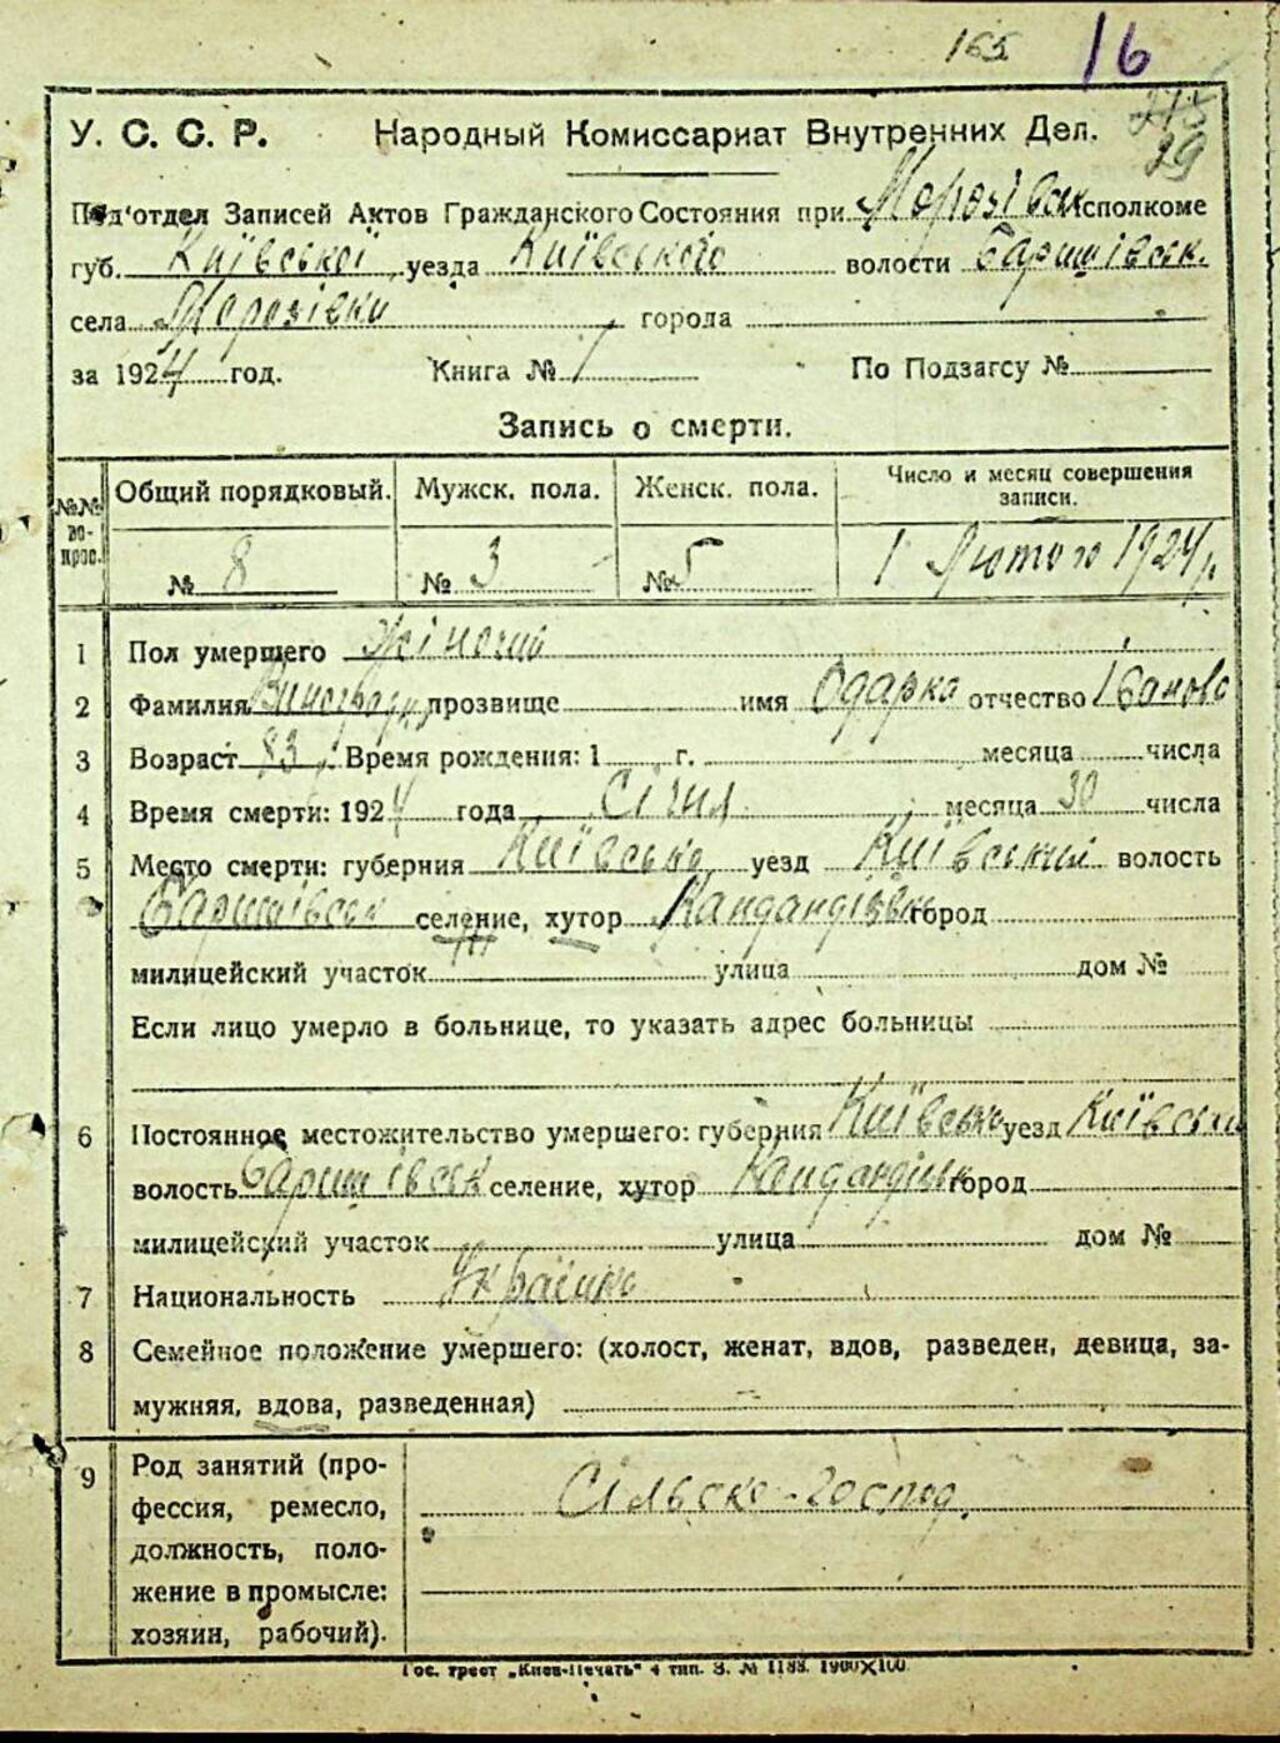 165 16
275
29
У. С. С. Р. Народный Комиссариат Внутренних Дел.
Под'отдел Записей Актов Гражданского Состояния при Морозівськ Исполкоме
губ. Київської уезда Київського волости Баришівськ.
села Морозівки города
за 1924 год. Книга № 1 По Подзагсу №
Запись о смерти.
№№ вопрос. Общий порядковый. Мужск. пола. Женск. пола. Число и месяц совершения записи.
№ 8 № 3 № 5 1 Лютого 1924 р.
1 Пол умершего Жіночий
2 Фамилия прозвище имя Одарка отчество Іванова
3 Возраст 83 Время рождения: 1 г. месяца числа
4 Время смерти: 1924 года Січня месяца 30 числа
5 Место смерти: губерния Київська уезд Київський волость
Баришівськ селение, хутор город
милицейский участок улица дом №
Если лицо умерло в больнице, то указать адрес больницы
6 Постоянное местожительство умершего: губерния Київська уезд Київськи
волость Баришівськ селение, хутор город
милицейский участок улица дом №
7 Национальность Українка
8 Семейное положение умершего: (холост, женат, вдов, разведен, девица, за-
мужняя, вдова, разведенная)
9 Род занятий (про- Сільско-господ.
фессия, ремесло,
должность, поло-
жение в промысле:
хозяин, рабочий).
Гос. трест „Киев-Печать“ 4 тип. З. № 1188. 1900X100